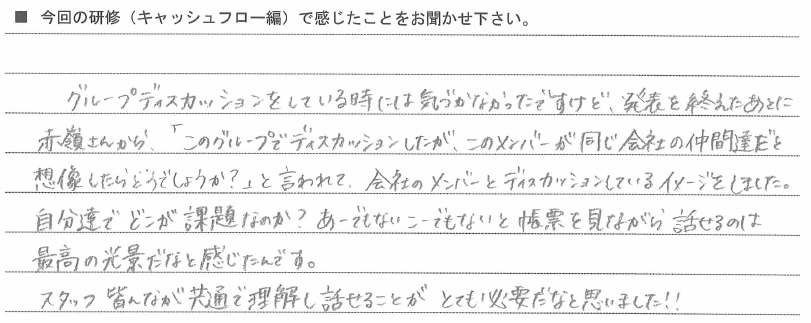 ■ 今回の研修（キャッシュフロー編）で感じたことをお聞かせ下さい。
グループディスカッションをしている時には気づかなかったですけど、発表を終えたあとに
赤嶺さんから、「このグループでディスカッションしたが、このメンバーが同じ会社の仲間達だと
想像したらどうでしょうか？」と言われて、会社のメンバーとディスカッションしているイメージをしました。
自分達でどこが課題なのか？あーでもないこーでもないと帳票を見ながら話せるのは
最高の光景だなと感じたんです。
スタッフ皆んなが共通で理解し話せることがとても必要だなと思いました!!